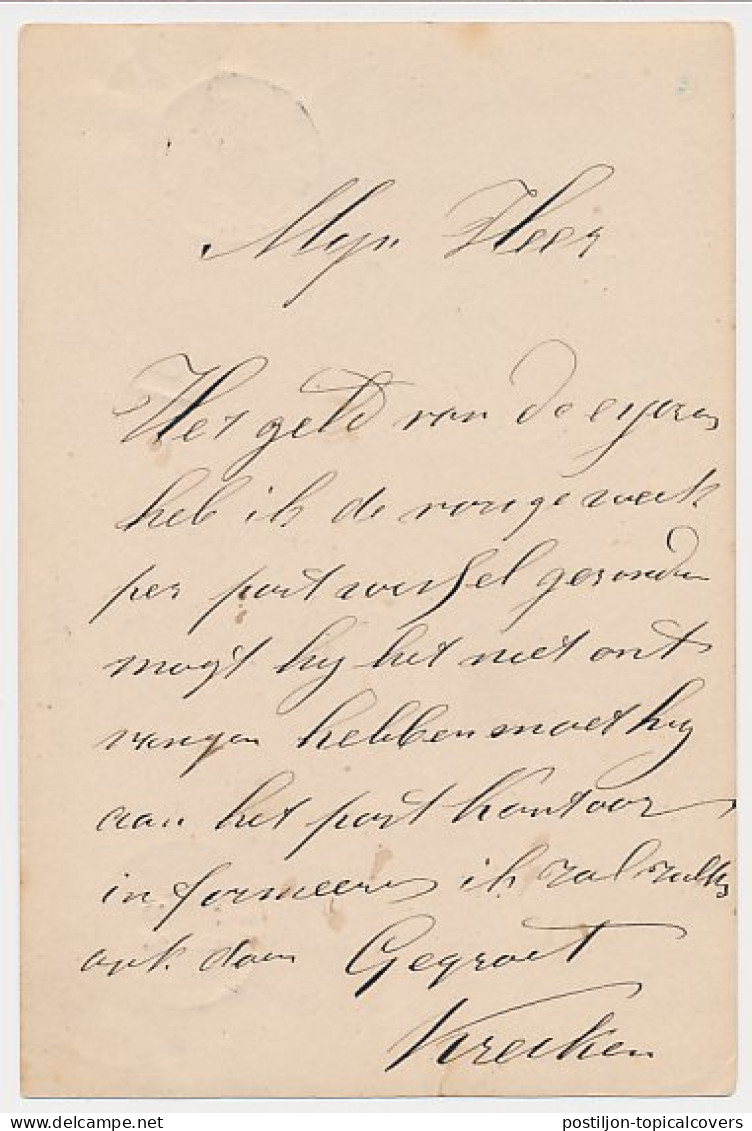 Myn Heer
Het geld van de eyeren
heb ik de vorige week
per postwissel gezonden
mogt hy het niet ont
vangen hebben moet hy
aan het post Kantoor
informeeren ik zal zulks
ook doen Gegroet
postiljon-topicalcovers